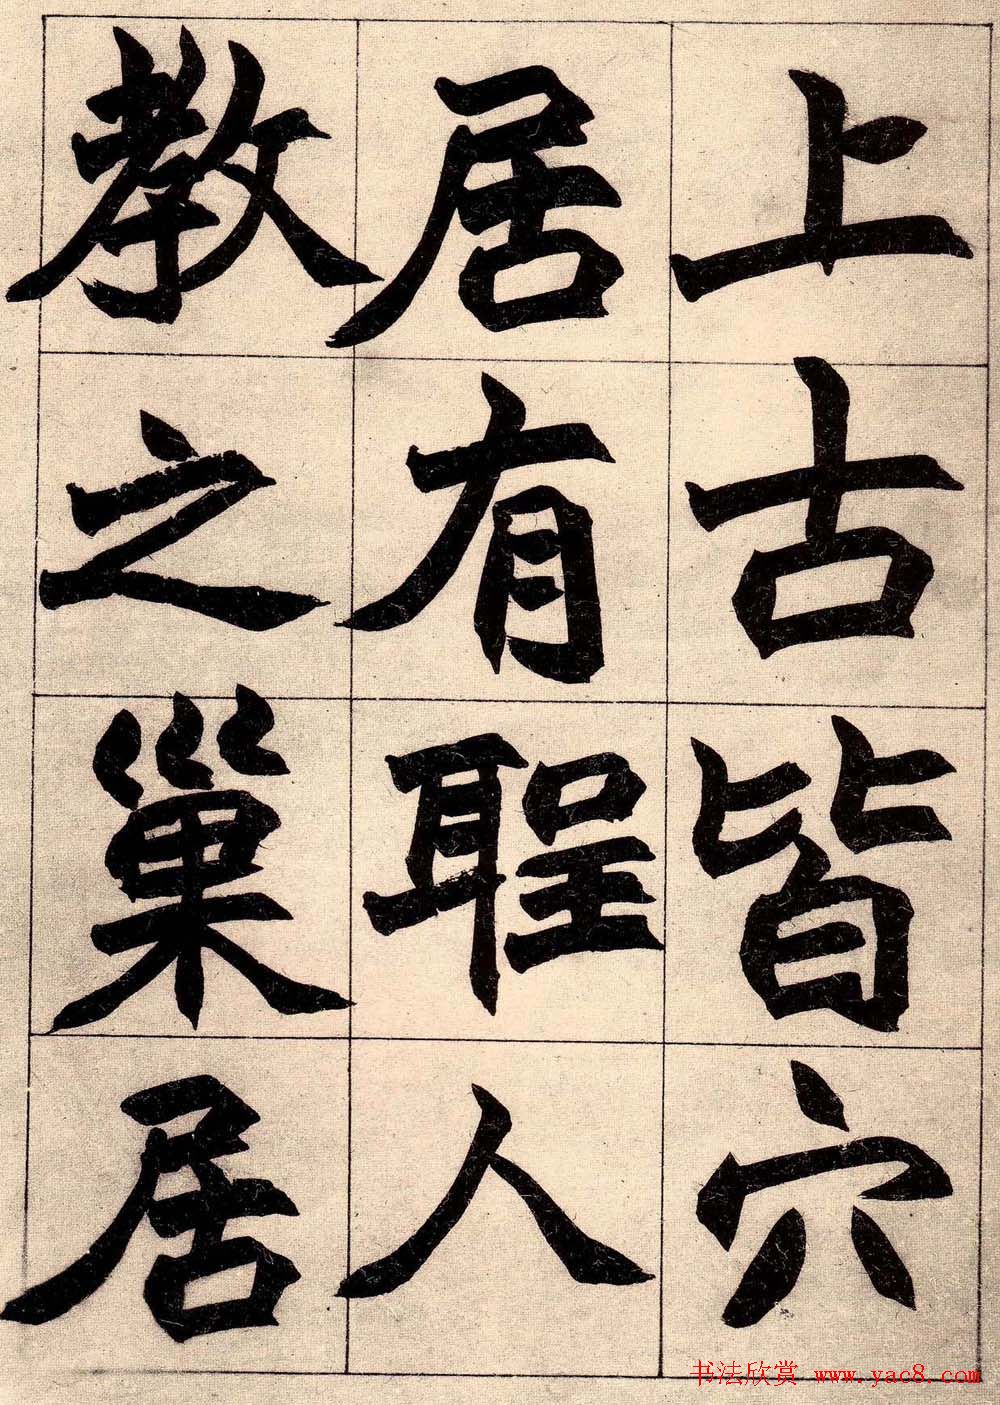 上古皆穴
居有聖人
教之巢居
书法欣赏 www.yac8.com